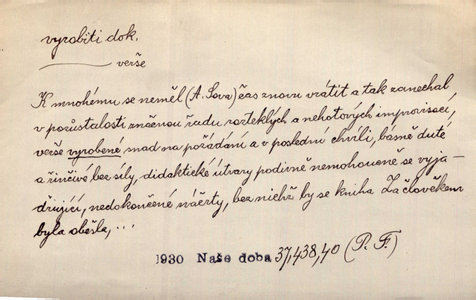 vyrobiti dok.
verše
K mnohému se neměl (A. Sova) čas znovu vrátit a tak zanechal
v pozůstalosti značnou řadu rozteklých a nehotových improvisací,
verše vyrobené snad na požádání a v poslední chvíli, básně duté
a řinčivé bez síly, didaktické útvary podivně nemohoucně se vyja-
dřující, nedokončené náčrty, bez nichž by se kniha Za člověkem
byla obešla, ...
1930 Naše doba 37,438,40 (P. F.)